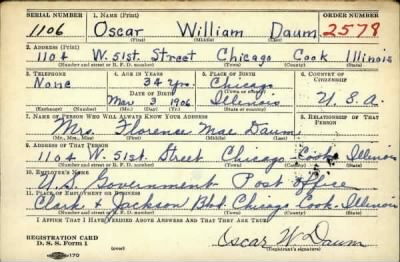 SERIAL NUMBER 1. NAME (Print) ORDER NUMBER
1106 Oscar William Daum 2578
(First) (Middle) (Last)
2. ADDRESS (Print)
1104 W. 51st. Street Chicago Cook Illinois
(Number and street or R. F. D. number) (Town) (County) (State)
3. TELEPHONE 4. AGE IN YEARS 5. PLACE OF BIRTH 6. COUNTRY OF CITIZENSHIP
None 34 yrs. Chicago
DATE OF BIRTH (Town or county)
Mar 3 1906 Illinois U.S.A.
(Exchange) (Number) (Mo.) (Day) (Yr.) (State or country)
7. NAME OF PERSON WHO WILL ALWAYS KNOW YOUR ADDRESS 8. RELATIONSHIP OF THAT PERSON
Mrs. Florence Mae Daum
(Mr., Mrs., Miss) (First) (Middle) (Last)
9. ADDRESS OF THAT PERSON
1104 W. 51st. Street Chicago Cook Illinois
(Number and street or R. F. D. number) (Town) (County) (State)
10. EMPLOYER'S NAME
U.S. Government Post Office
11. PLACE OF EMPLOYMENT OR BUSINESS
Clark & Jackson Blvd. Chicago Cook Illinois
(Number and street or R. F. D. number) (Town) (County) (State)
I AFFIRM THAT I HAVE VERIFIED ABOVE ANSWERS AND THAT THEY ARE TRUE.
REGISTRATION CARD
D. S. S. Form 1 (over) Oscar W Daum
(Registrant's signature)